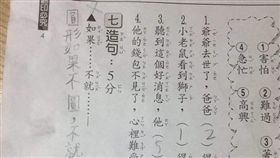 ①害怕 ②難過
④急忙 ⑤高興
1.爺爺去世了,爸爸(2)
2.小老鼠看到獅子,(1)得
3.聽到這個好消息,他(5)
4.他的錢包不見了,心裡難
七造句:5分
▲如果……不就……
圓形如果不圓,不就
4